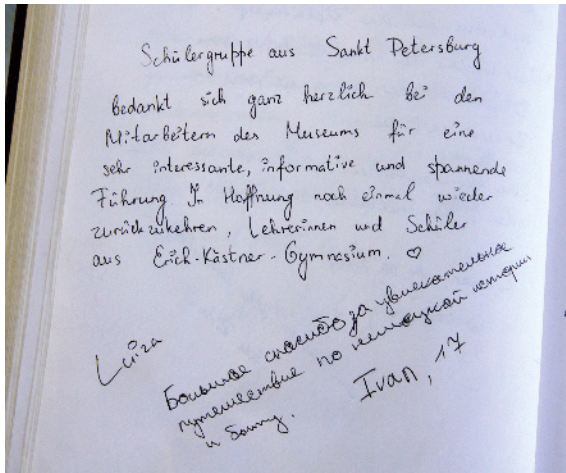 Schülergruppe aus Sankt Petersburg
bedankt sich ganz herzlich bei den
Mitarbeitern des Museums für eine
sehr interessante, informative und spannende
Führung. In Hoffnung noch einmal wieder
zurückzukehren, Lehrerinnen und Schüler
aus Erich-Kästner-Gymnasium. ♡
Luiza
Большое спасибо за увлекательное
путешествие по немецкой истории
и быту.
Ivan, 17